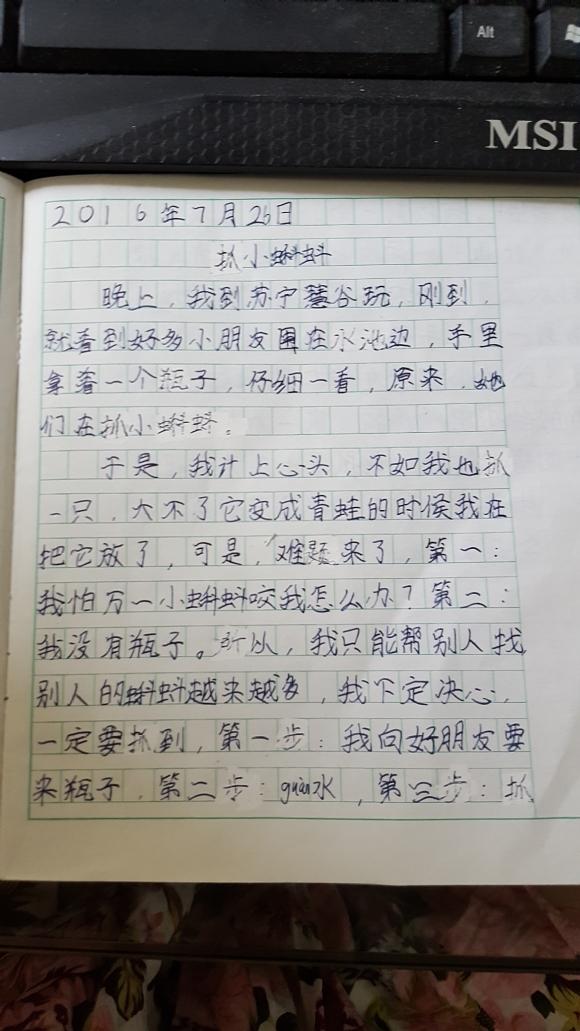 Alt
MSI
2016年7月26日
抓小蝌蚪
晚上，我到苏宁慧谷玩，刚到，
就看到好多小朋友围在水池边，手里
拿着一个瓶子，仔细一看，原来，她
们在抓小蝌蚪。
于是，我计上心头，不如我也抓
一只，大不了它变成青蛙的时候我在
把它放了，可是，难题来了，第一：
我怕万一小蝌蚪咬我怎么办？第二：
我没有瓶子。所以，我只能帮别人找，
别人的蝌蚪越来越多，我下定决心，
一定要抓到，第一步：我向好朋友要
来瓶子，第二步：guàn水，第三步：抓